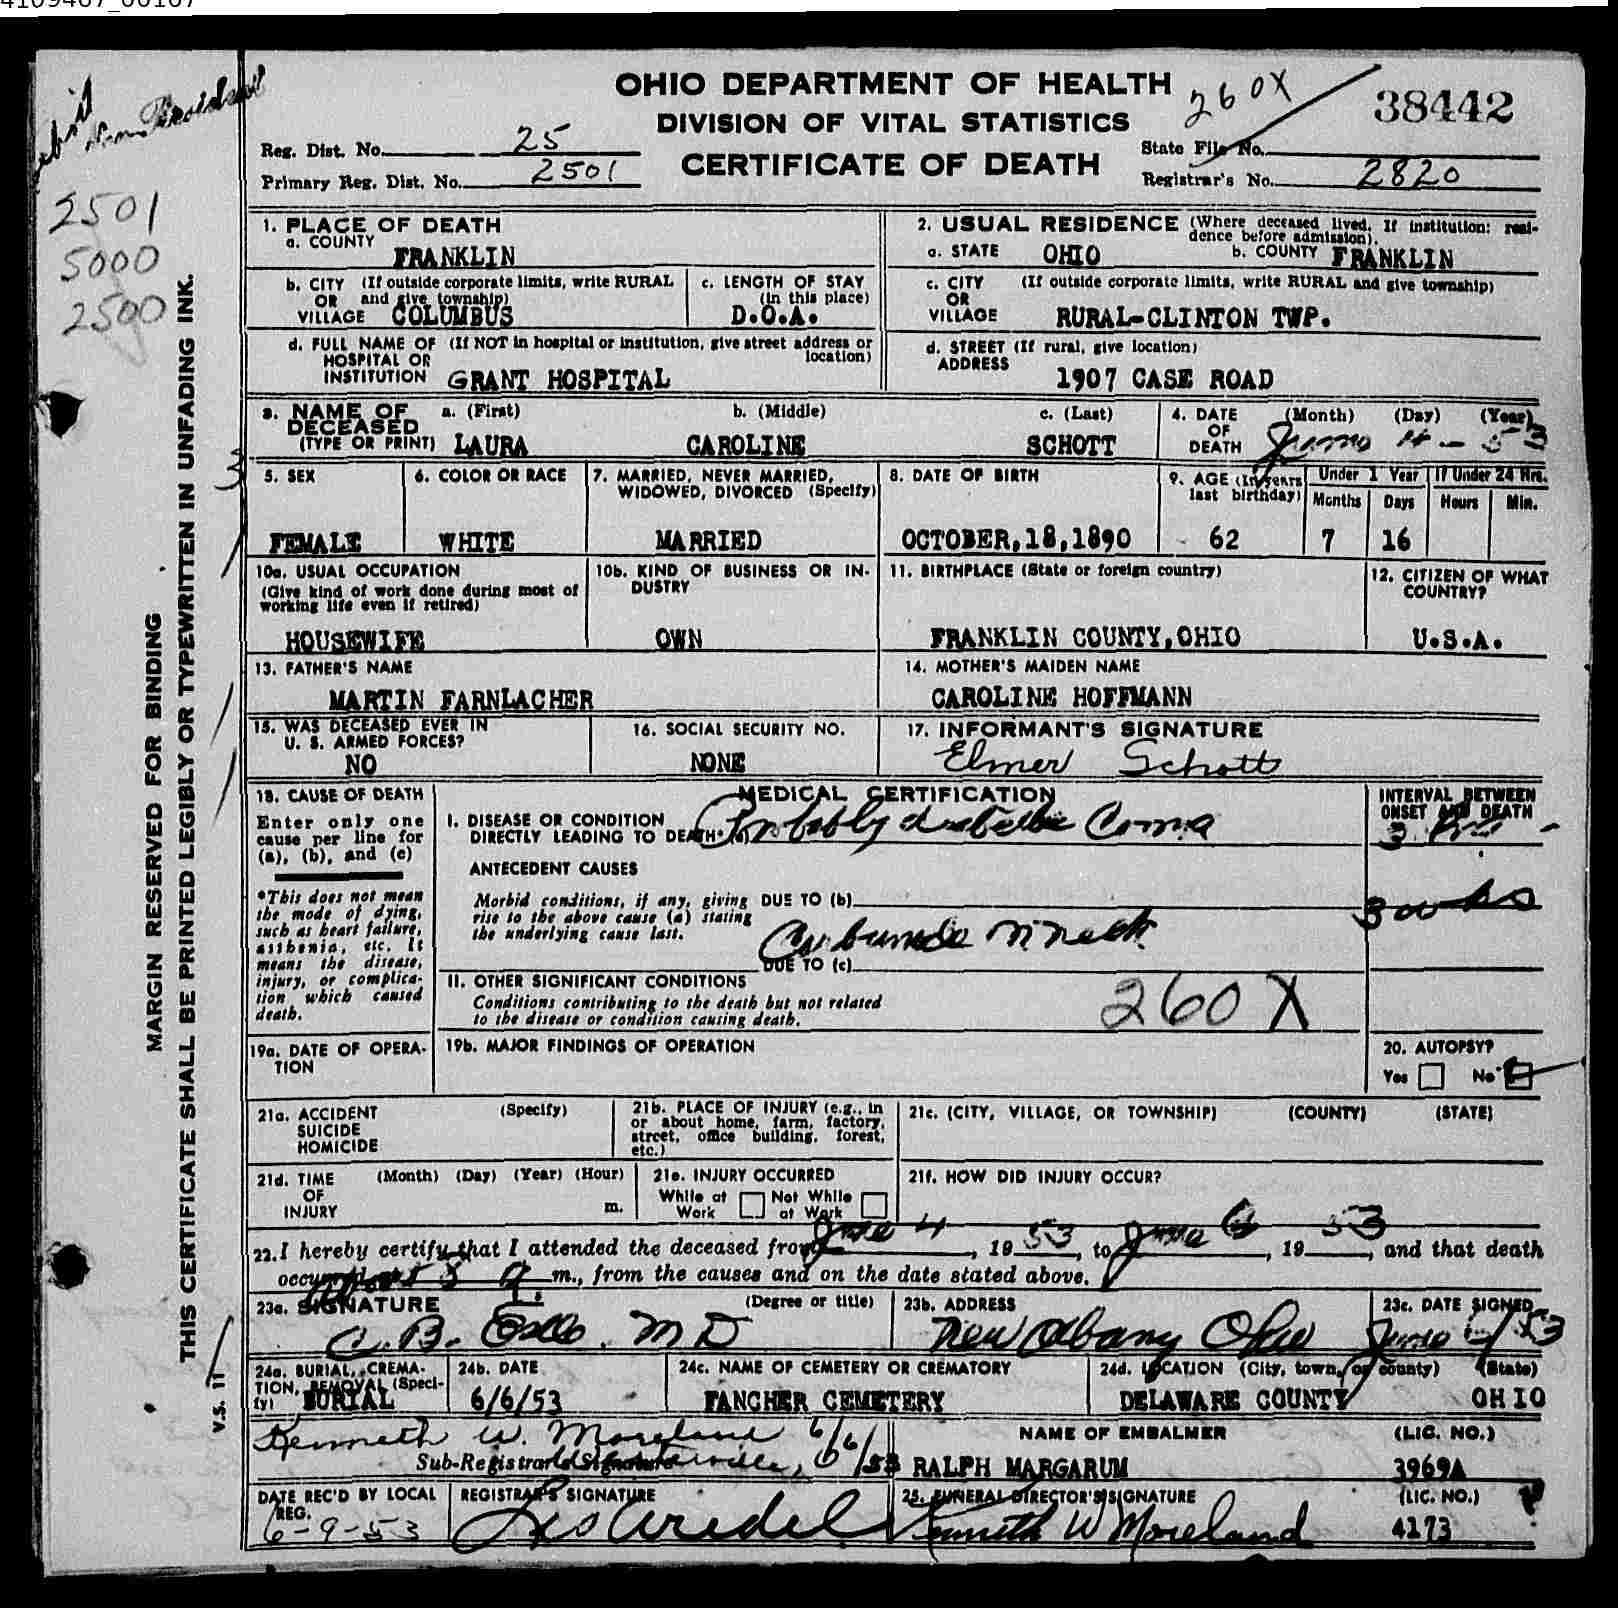 OHIO DEPARTMENT OF HEALTH
DIVISION OF VITAL STATISTICS
CERTIFICATE OF DEATH
260X
38442
Reg. Dist. No. 25
Primary Reg. Dist. No. 2501
State File No.
Registrar's No. 2820
2501
5000
2500
MARGIN RESERVED FOR BINDING
THIS CERTIFICATE SHALL BE PRINTED LEGIBLY OR TYPEWRITTEN IN UNFADING INK.
V.S. 11
1. PLACE OF DEATH
a. COUNTY FRANKLIN
b. CITY (If outside corporate limits, write RURAL
OR and give township)
VILLAGE COLUMBUS
c. LENGTH OF STAY
(in this place)
D.O.A.
d. FULL NAME OF (If NOT in hospital or institution, give street address or
HOSPITAL OR location)
INSTITUTION GRANT HOSPITAL
2. USUAL RESIDENCE (Where deceased lived. If institution: resi-
dence before admission).
a. STATE OHIO b. COUNTY FRANKLIN
c. CITY (If outside corporate limits, write RURAL and give township)
OR
VILLAGE RURAL-CLINTON TWP.
d. STREET (If rural, give location)
ADDRESS 1907 CASE ROAD
3. NAME OF a. (First) b. (Middle) c. (Last)
DECEASED
(TYPE OR PRINT) LAURA CAROLINE SCHOTT
4. DATE (Month) (Day) (Year)
OF
DEATH June 4 - 53
5. SEX
FEMALE
6. COLOR OR RACE
WHITE
7. MARRIED, NEVER MARRIED,
WIDOWED, DIVORCED (Specify)
MARRIED
8. DATE OF BIRTH
OCTOBER,18,1890
9. AGE (In years
last birthday)
62
Under 1 Year
Months Days
7 16
If Under 24 Hrs.
Hours Min.
10a. USUAL OCCUPATION
(Give kind of work done during most of
working life even if retired)
HOUSEWIFE
10b. KIND OF BUSINESS OR IN-
DUSTRY
OWN
11. BIRTHPLACE (State or foreign country)
FRANKLIN COUNTY,OHIO
12. CITIZEN OF WHAT
COUNTRY?
U.S.A.
13. FATHER'S NAME
MARTIN FARNLACHER
14. MOTHER'S MAIDEN NAME
CAROLINE HOFFMANN
15. WAS DECEASED EVER IN
U. S. ARMED FORCES?
NO
16. SOCIAL SECURITY NO.
NONE
17. INFORMANT'S SIGNATURE
Elmer Schott
18. CAUSE OF DEATH
Enter only one
cause per line for
(a), (b), and (c)
*This does not mean
the mode of dying,
such as heart failure,
asthenia, etc. It
means the disease,
injury, or complica-
tion which caused
death.
MEDICAL CERTIFICATION
I. DISEASE OR CONDITION
DIRECTLY LEADING TO DEATH* (a) Probably diabetic Coma
ANTECEDENT CAUSES
Morbid conditions, if any, giving DUE TO (b)
rise to the above cause (a) stating
the underlying cause last.
Carbuncle neck
DUE TO (c)
II. OTHER SIGNIFICANT CONDITIONS
Conditions contributing to the death but not related
to the disease or condition causing death.
260 X
INTERVAL BETWEEN
ONSET AND DEATH
3
3 wks
19a. DATE OF OPERA-
TION
19b. MAJOR FINDINGS OF OPERATION
20. AUTOPSY?
Yes No
21a. ACCIDENT (Specify)
SUICIDE
HOMICIDE
21b. PLACE OF INJURY (e.g., in
or about home, farm, factory,
street, office building, forest,
etc.)
21c. (CITY, VILLAGE, OR TOWNSHIP) (COUNTY) (STATE)
21d. TIME (Month) (Day) (Year) (Hour)
OF
INJURY m.
21e. INJURY OCCURRED
While at Not While
Work at Work
21f. HOW DID INJURY OCCUR?
22. I hereby certify that I attended the deceased from June 4, 19 53, to June 6, 19 53, and that death
occurred at m., from the causes and on the date stated above.
23a. SIGNATURE (Degree or title)
C. B. MD
23b. ADDRESS
New Albany Ohio
23c. DATE SIGNED
June 53
24a. BURIAL, CREMA-
TION, REMOVAL (Speci-
fy) BURIAL
24b. DATE
6/6/53
24c. NAME OF CEMETERY OR CREMATORY
FANCHER CEMETERY
24d. LOCATION (City, town, or county) (State)
DELAWARE COUNTY OHIO
Kenneth W. Moreland 6/6
Sub-Registrar's Signature 6/6/53
NAME OF EMBALMER (LIC. NO.)
RALPH MARGARUM 3969A
DATE REC'D BY LOCAL
REG.
6-9-53
REGISTRAR'S SIGNATURE
25. FUNERAL DIRECTOR'S SIGNATURE (LIC. NO.)
Kenneth W Moreland 4173